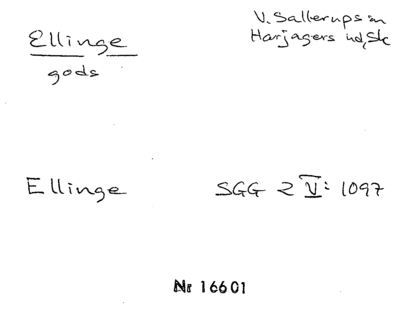 Ellinge
gods
V. Sallerups sn
Harjagers hd, Sk
Ellinge SGG 2 V: 1097
Nr 16601